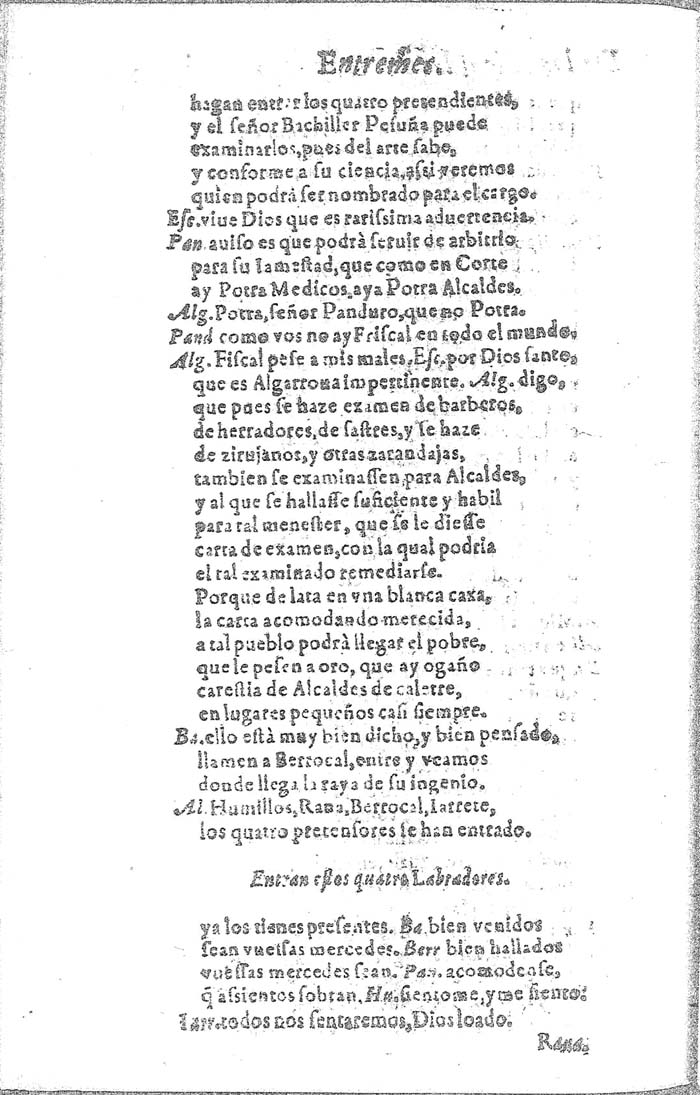 Entremes.
hagan entrar los quatro pretendientes,
y el ſeñor Bachiller Peſuña puede
examinarlos, pues del arte ſabe,
y conforme a ſu ciencia, aſsi veremos
quien podrà ſer nombrado para el cargo.
Eſc. viue Dios que es rariſsima aduertencia.
Pan. auiſo es que podrà ſeruir de arbitrio
para ſu Iameſtad, que como en Corte
ay Potra Medicos, aya Potra Alcaldes.
Alg. Potra, ſeñor Panduro, que no Potra.
Pand como vos no ay Friſcal en todo el mundo.
Alg. Fiſcal peſe a mis males. Eſc. por Dios ſanto,
que es Algarroua impertinente. Alg. digo,
que pues ſe haze examen de barberos,
de herradores, de ſaſtres, y ſe haze
de zirujanos, y otras zarandajas,
tambien ſe examinaſſen para Alcaldes,
y al que ſe hallaſſe ſuficiente y habil
para tal meneſter, que ſe le dieſſe
carta de examen, con la qual podria
el tal examinado remediarſe.
Porque de lata en vna blanca caxa,
la carta acomodando merecida,
a tal pueblo podrà llegar el pobre,
que le peſen a oro, que ay ogaño
careſtia de Alcaldes de caletre,
en lugares pequeños caſi ſiempre.
Ba. ello eſtà muy bien dicho, y bien penſado,
llamen a Berrocal, entre y veamos
donde llega la raya de ſu ingenio.
Al. Humillos, Rana, Berrocal, Iarrete,
los quatro pretenſores ſe han entrado.
Entran eſtos quatro Labradores.
ya los tienes preſentes. Ba. bien venidos
ſean vueſſas mercedes. Berr bien hallados
vueſſas mercedes ſean. Pan. acomodenſe,
q̃ aſsientos ſobran. Hu. ſientome, y me ſiento.
Iarr. todos nos ſentaremos, Dios loado.
Rana.